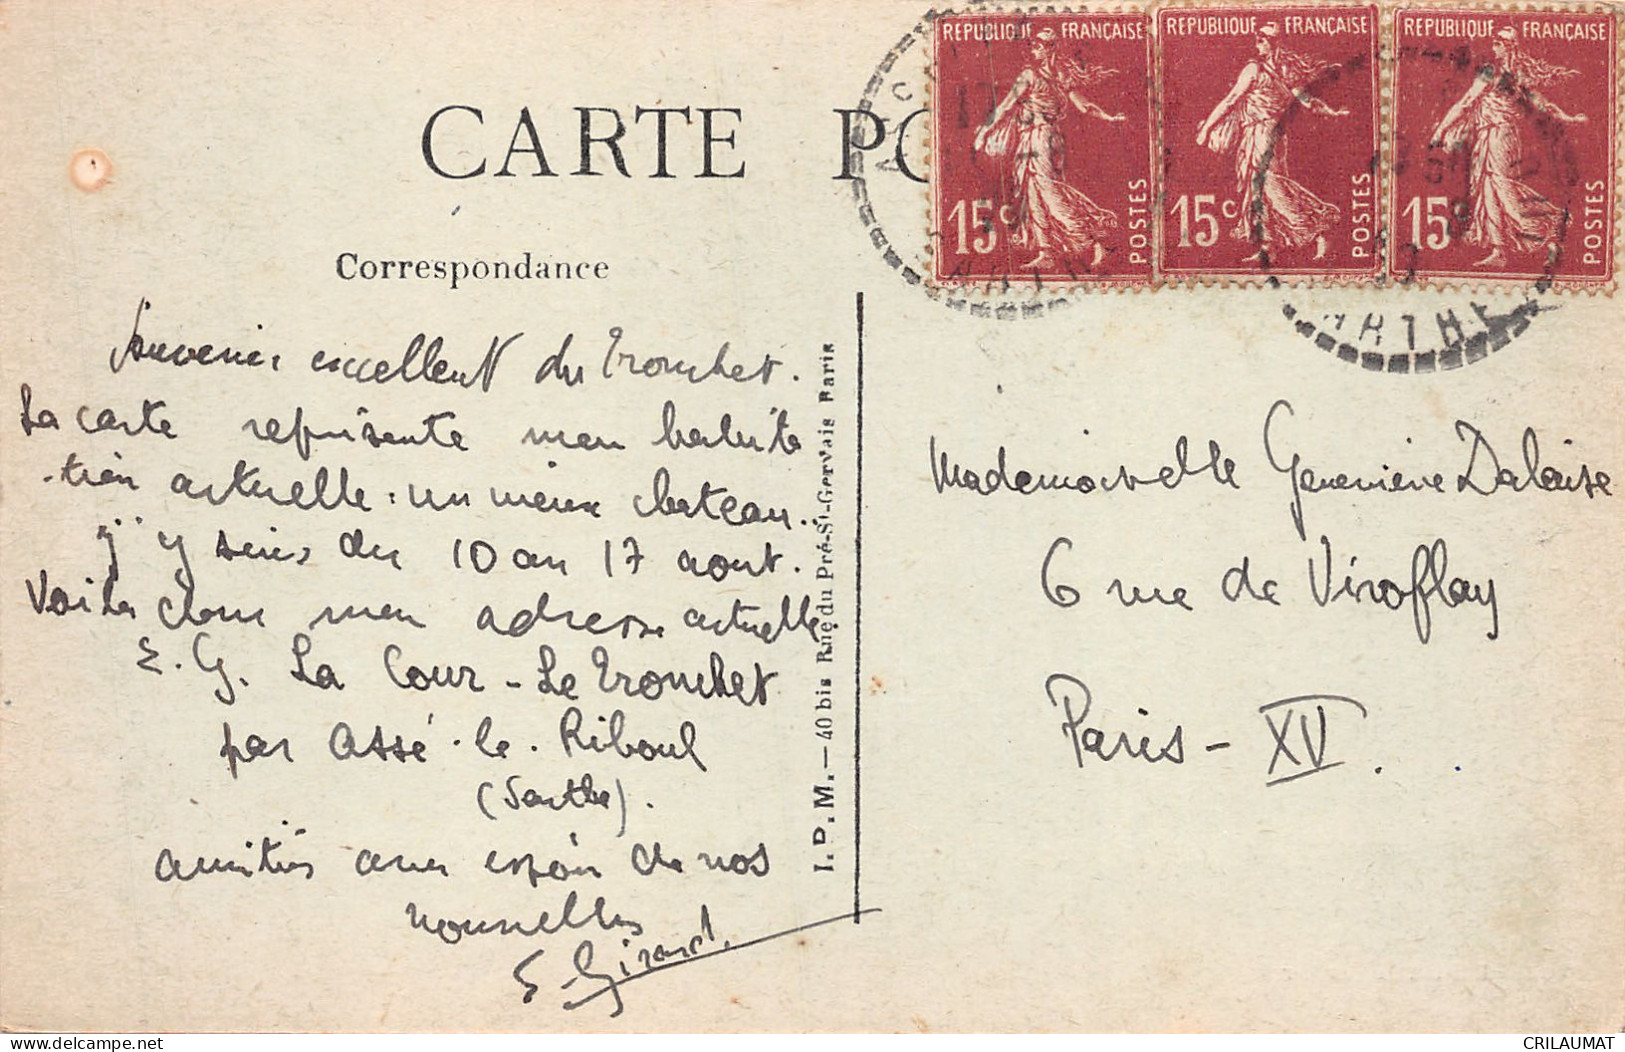 CARTE PO
REPUBLIQUE FRANÇAISE
15c POSTES
REPUBLIQUE FRANÇAISE
15c POSTES
REPUBLIQUE FRANÇAISE
15 POSTES
SARTHE
ARTHE
Correspondance
Souvenir excellent du Tronchet.
La carte représente mon habita
-tion actuelle : un vieux chateau..
j'y suis du 10 au 17 aout.
Voila donc mon adresse actuelle
E. G. La Cour - Le Tronchet
par Assé-le-Riboul
(Sarthe).
amitiés avec espoir de vos
nouvelles
E Girard.
I. P. M. — 40 bis Rue du Pré-St-Gervais Paris
Mademoiselle Geneviève Dalaise
6 rue de Viroflay
Paris - XV.
delcampe.net
CRILAUMAT